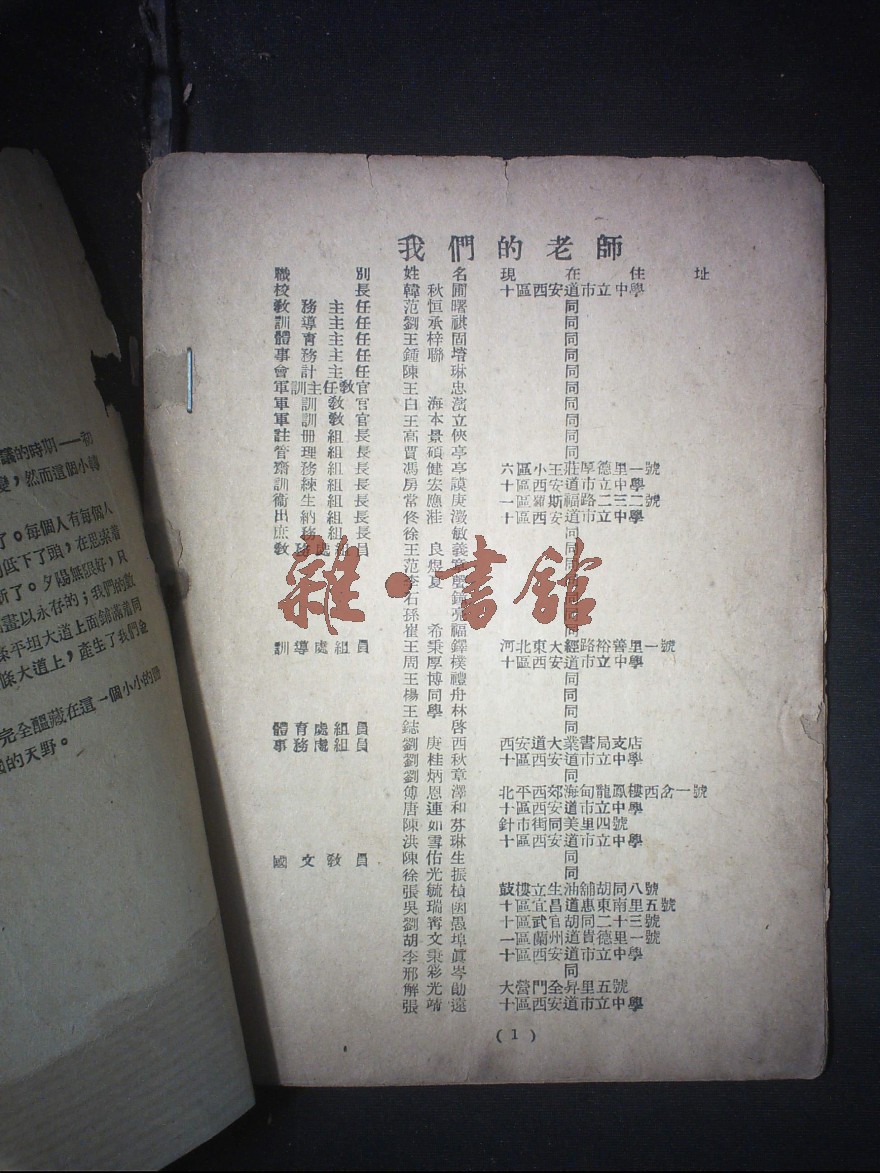 議的時期——初
變，然而這個小轉
了。每個人有每個人
的低下了頭，在思索着
新了。夕陽無限好，只
盡以永存的；我們的教
條平坦大道上面鋪滿着同
條大道上，產生了我們金
完全醞藏在這一個小小的冊
的天野。
我們的老師
職別 姓名 現在住址
校長 韓秋圃 十區西安道市立中學
教務主任 范恒曙 同
訓導主任 劉承祺 同
體育主任 王梓固 同
事務主任 鍾聯增 同
會計主任 陳琳 同
軍訓主任教官 王忠 同
軍訓教官 白海濱 同
軍訓教官 王本立 同
註冊組長 高景俠 同
管理組長 賈碩亭 同
齋務組長 馮健亭 六區小王莊厚德里一號
訓練組長 房宏謨 十區西安道市立中學
衛生組長 常應庚 一區羅斯福路二三二號
出納組長 佟淮澂 十區西安道市立中學
庶務組長 徐敏 同
教務處組員 王良義 同
范煜
李夏
石
孫亮
崔希福 同
訓導處組員 王秉鐸 河北東大經路裕善里一號
周厚樸 十區西安道市立中學
王博禮 同
楊同舟 同
王學林 同
鋕啓 同
體育處組員 劉庚西 西安道大業書局支店
事務處組員 劉桂秋 十區西安道市立中學
劉炳章 同
傅恩澤 北平西郊海甸龍鳳樓西岔一號
唐連和 十區西安道市立中學
陳如芬 針市街同美里四號
洪雪琳 十區西安道市立中學
國文教員 陳佑生 同
徐光振 同
張毓楨 鼓樓立生油舖胡同八號
吳瑞函 十區宜昌道惠東南里五號
劉甯愚 十區武官胡同二十三號
胡文埠 一區蘭州道貴德里一號
李秉眞 十區西安道市立中學
邢彩岑 同
解光勛 大營門全昇里五號
張靖遠 十區西安道市立中學
(1)
雜·書館